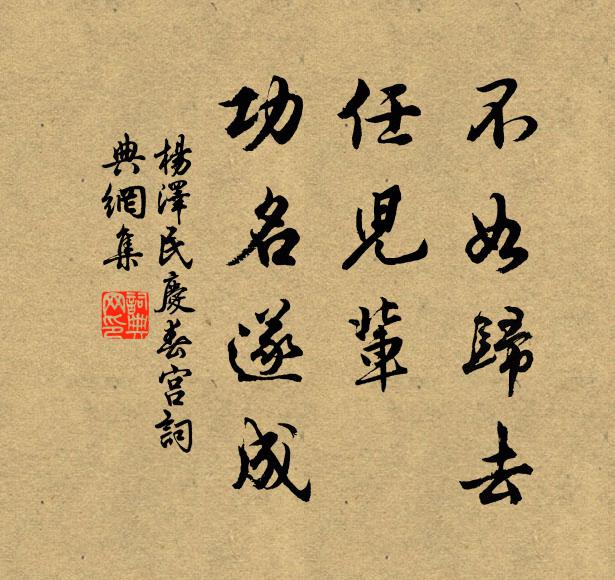 不如歸去
任兒輩
功名遂成
楊澤民慶春宮詞
典網集
詞典
网印